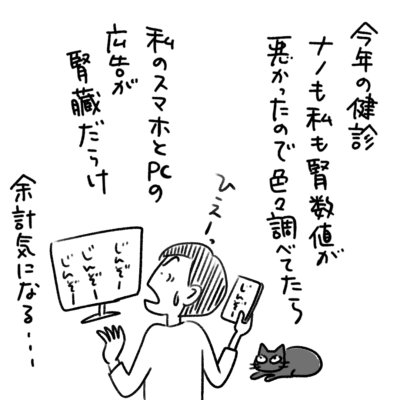 今年の健診
ナノも私も腎数値が
悪かったので色々調べてたら
私のスマホとPCの
広告が
腎臓だらけ
ひえー、
じんぞー
じんぞー
じんぞー
じんぞー
余計気になる…